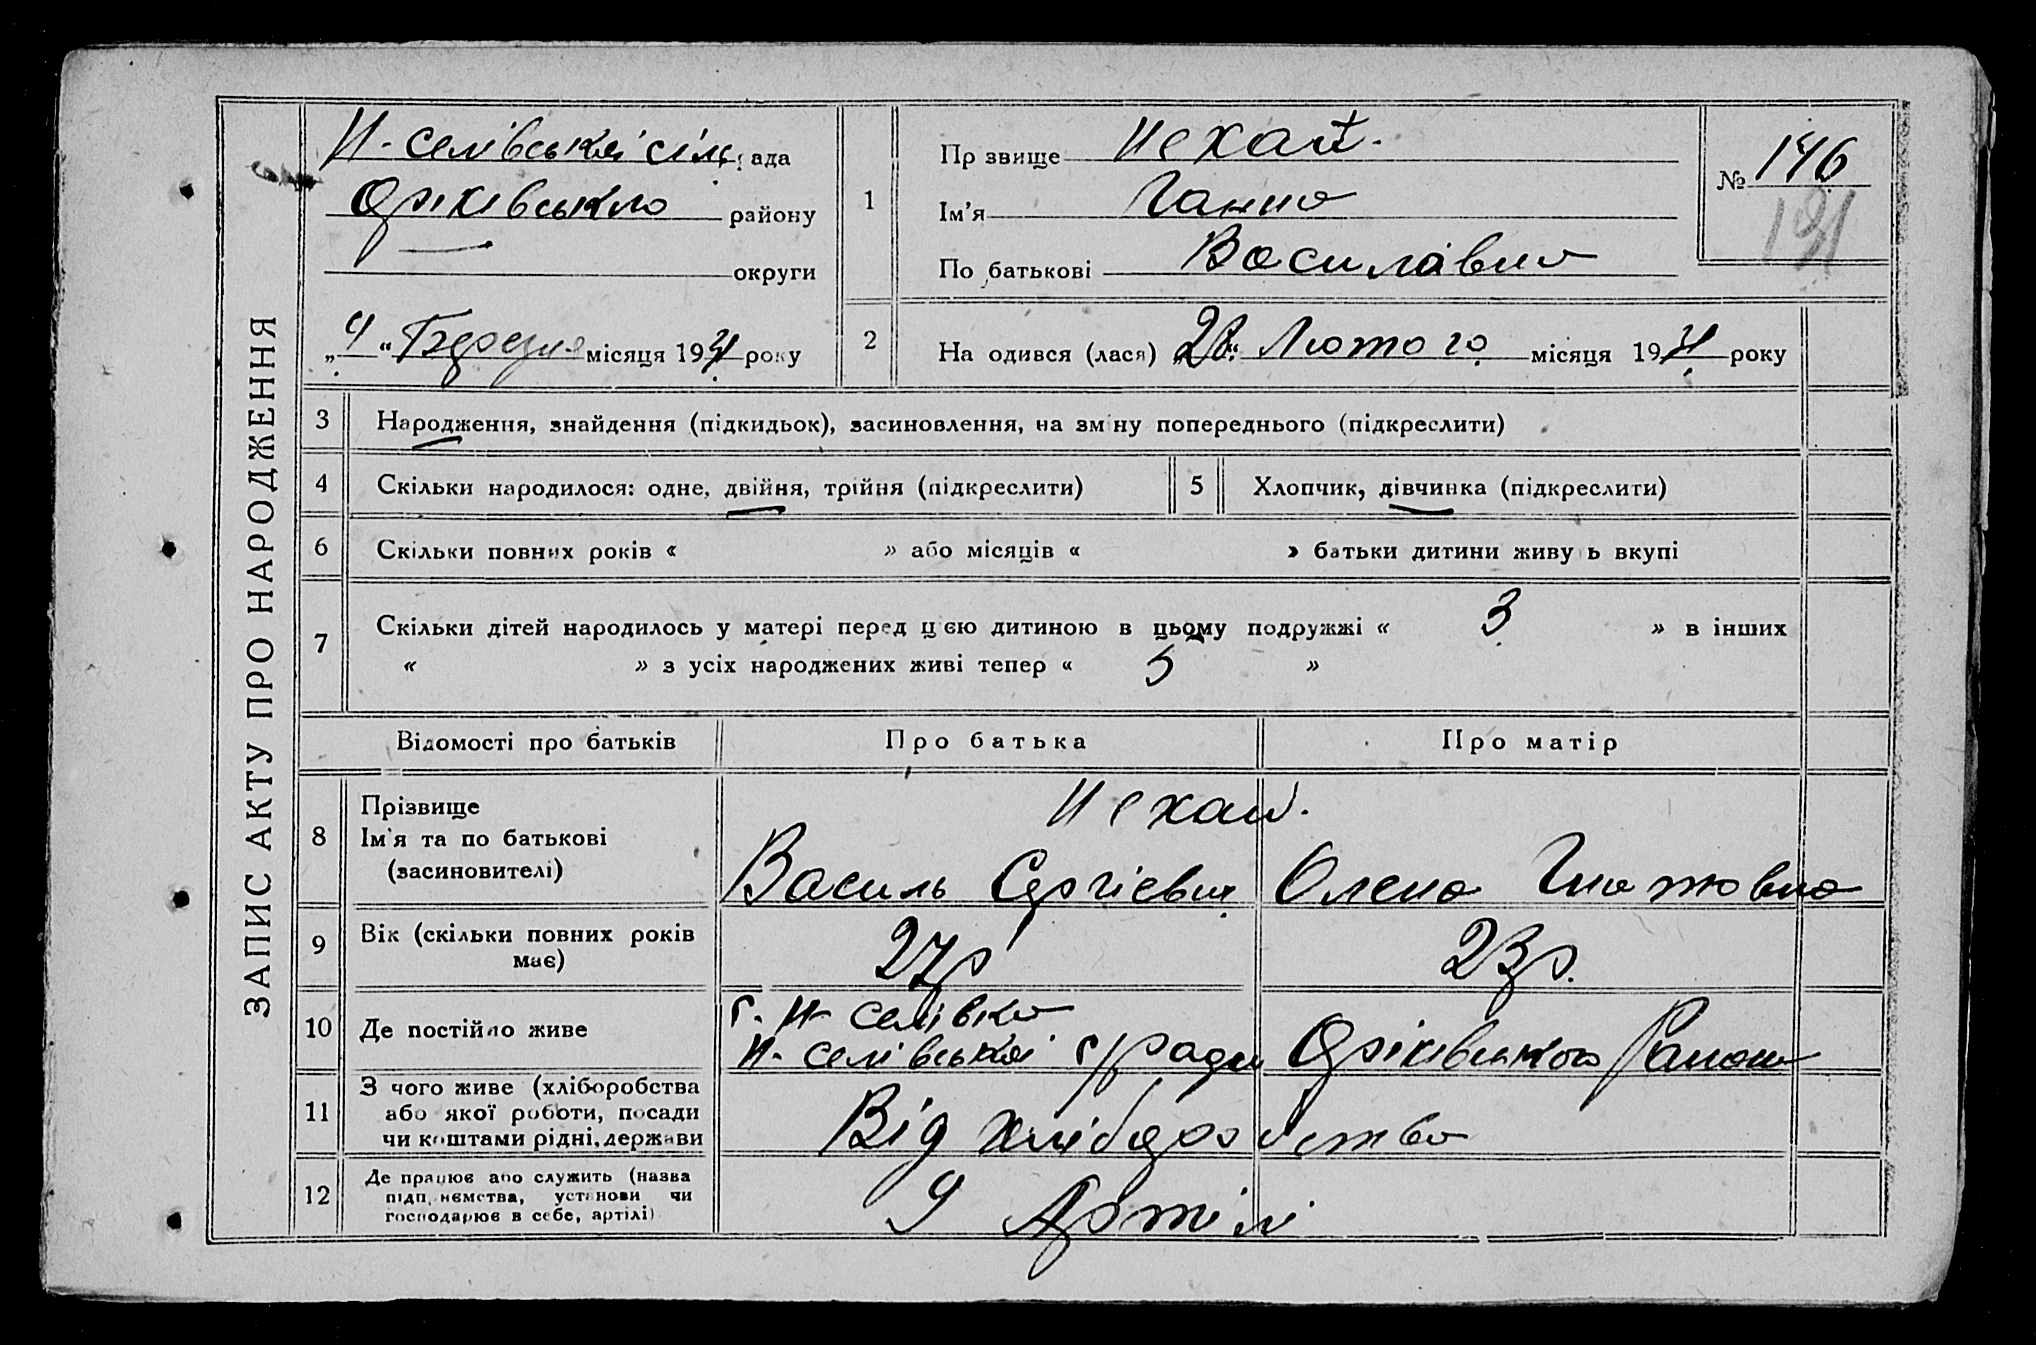 ЗАПИС АКТУ ПРО НАРОДЖЕННЯ
Н-Селівської сіль рада
Оріхівського району
округи
„4“ Березня місяця 1931 року
1
Пр звище Нехай.
Ім'я Ганна
По батькові Василівна
№ 146
191
2 На одився (лася) „28“ Лютого місяця 1931 року
3 Народження, знайдення (підкидьок), засиновлення, на зміну попереднього (підкреслити)
4 Скільки народилося: одне, двійня, трійня (підкреслити) 5 Хлопчик, дівчинка (підкреслити)
6 Скільки повних років « » або місяців « » батьки дитини живу ь вкупі
7 Скільки дітей народилось у матері перед цією дитиною в цьому подружжі « 3 » в інших
« » з усіх народжених живі тепер « 5 »
Відомості про батьків Про батька Про матір
8 Прізвище
Ім'я та по батькові
(засиновителі)
Нехай.
Василь Сергієвич Олена Гнатовна
9 Вік (скільки повних років
має)
27р 23р.
10 Де постійно живе
с. Н-Селівка
Н-Селівської с/ради Оріхівського Району
11 З чого живе (хліборобства
або якої роботи, посади
чи коштами рідні, держави
Від хліборобства
12 Де працює або служить (назва
підп, немства, установи чи
господарює в себе, артілі)
У Артілі